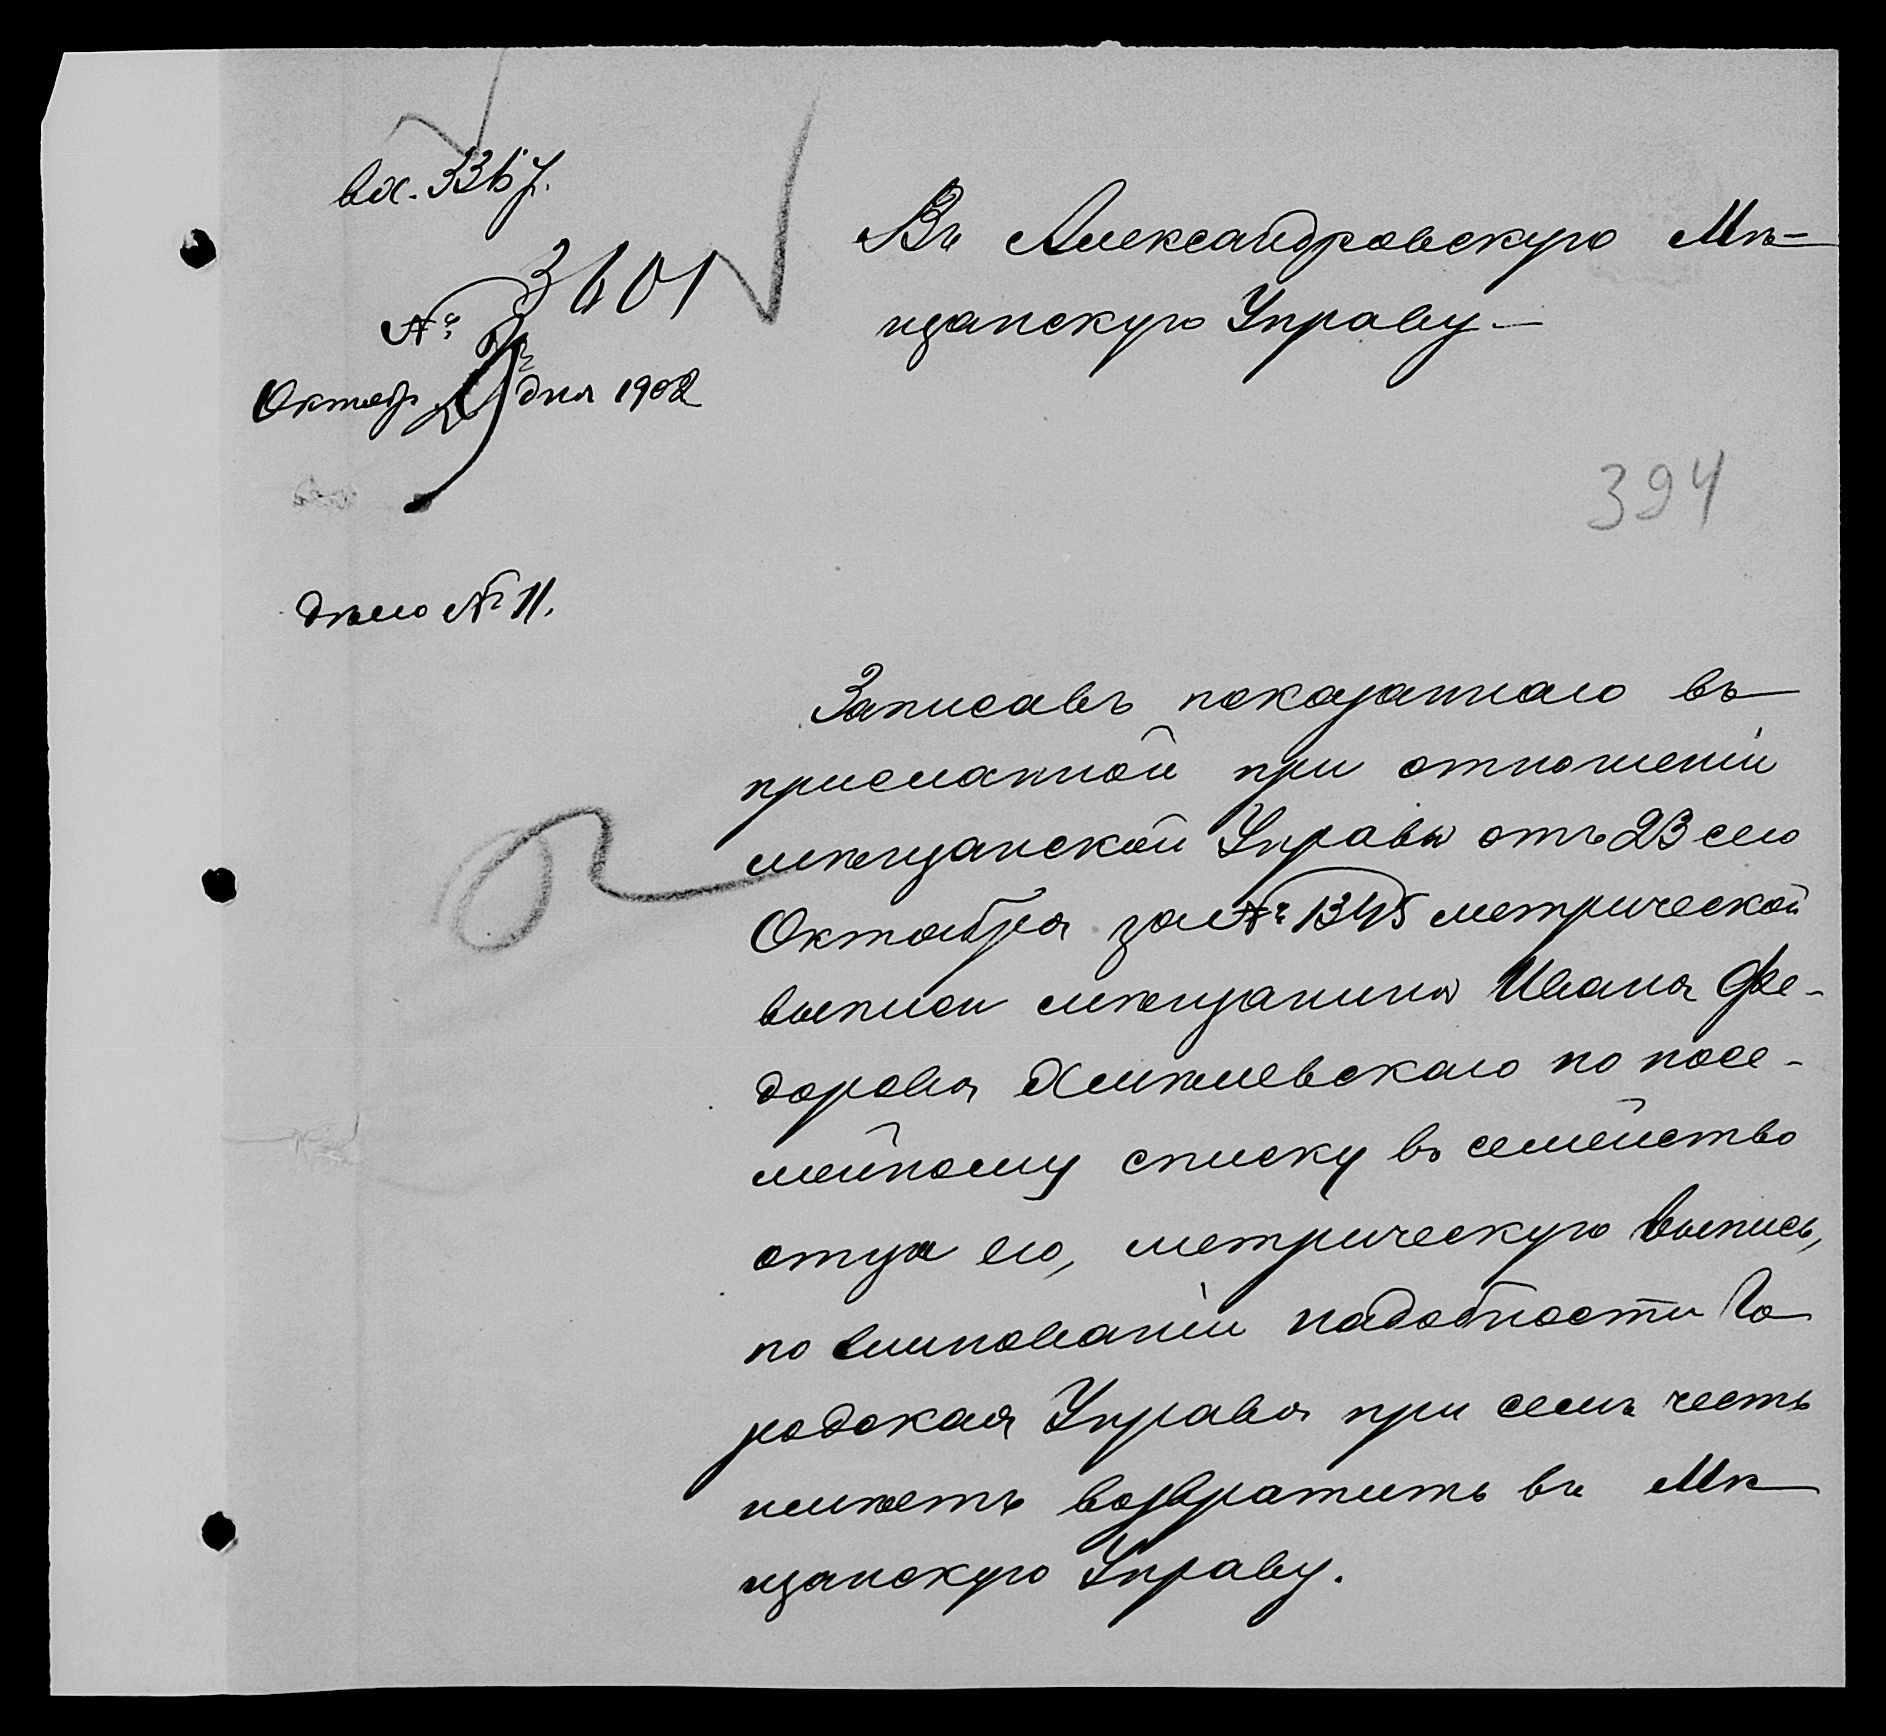 вх. 3367.
№ 3601
Октябр 29 дня 1902
Въ Александровскую Мѣ-
щанскую Управу-
394
дѣло № 11.
Записавъ показаннаго въ
присланной при отношеніи
мѣщанской Управы отъ 23 сего
Октября за № 1345 метрической
выписи мѣщанина Ивана Фе-
дорова по посе-
мейному списку въ семейство
отца его, метрическую выпись,
по минованіи надобности Го
родская Управа при семъ честь
имѣетъ возвратить въ Мѣ
щанскую Управу.